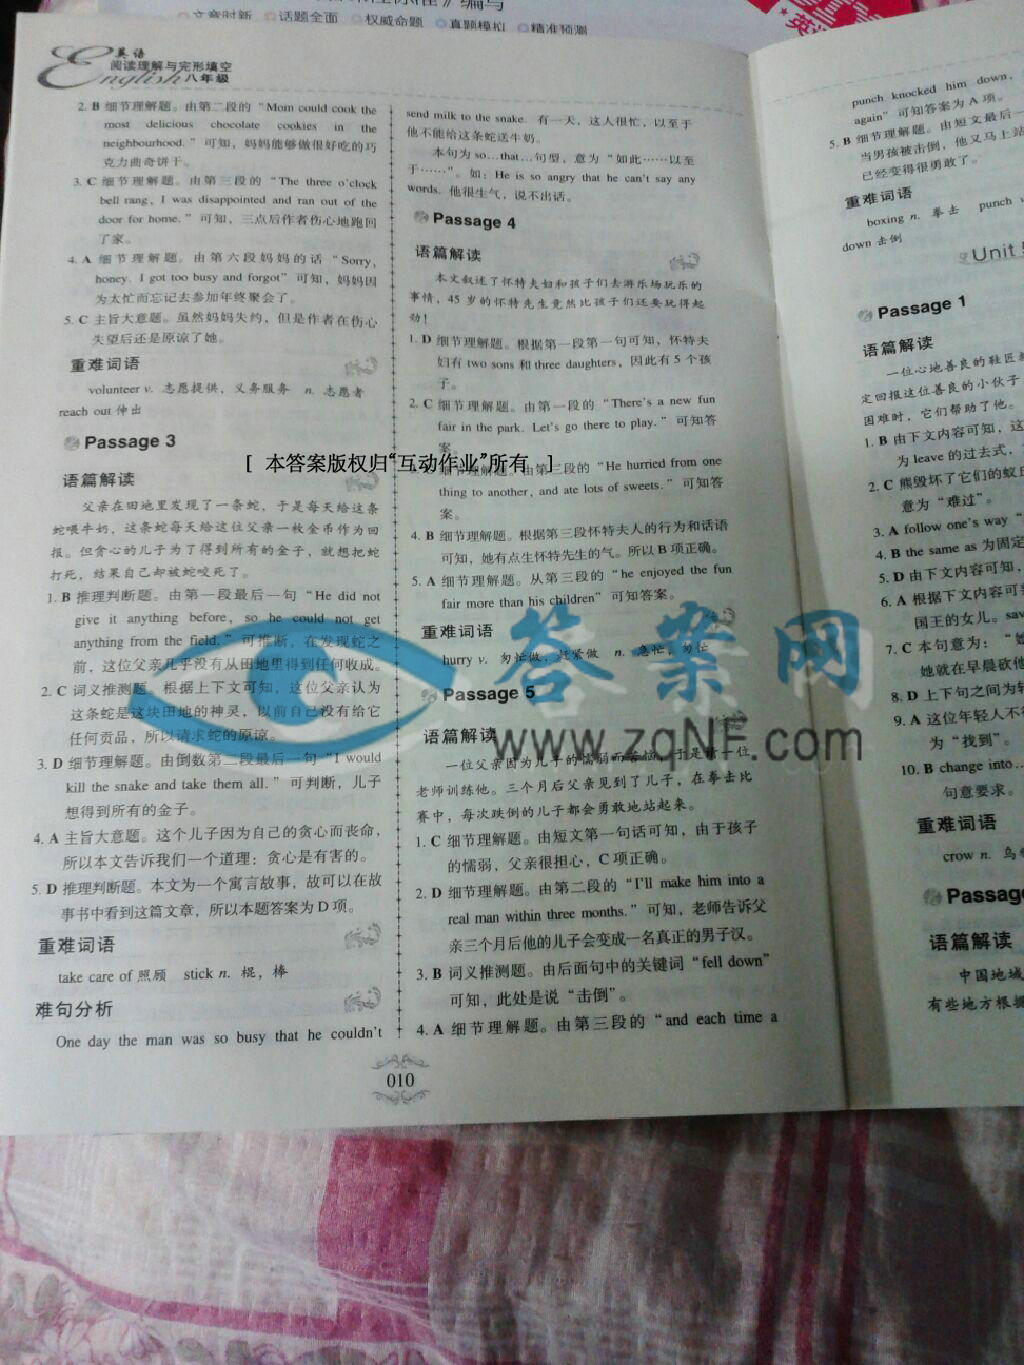 文章时新 话题全面 权威命题 真题模拟 精准预测
英语
阅读理解与完形填空
English 八年级
2. B 细节理解题。由第二段的“Mom could cook the
most delicious chocolate cookies in the
neighbourhood.”可知，妈妈能够做很好吃的巧
克力曲奇饼干。
3. C 细节理解题。由第三段的“The three o'clock
bell rang, I was disappointed and ran out of the
door for home.”可知，三点后作者伤心地跑回
了家。
4. A 细节理解题。由第六段妈妈的话“Sorry,
honey. I got too busy and forgot”可知，妈妈因
为太忙而忘记去参加年终聚会了。
5. C 主旨大意题。虽然妈妈失约，但是作者在伤心
失望后还是原谅了她。
重难词语
volunteer v. 志愿提供，义务服务 n. 志愿者
reach out 伸出
Passage 3
语篇解读
父亲在田地里发现了一条蛇，于是每天给这条
蛇喂牛奶，这条蛇每天给这位父亲一枚金币作为回
报。但贪心的儿子为了得到所有的金子，就想把蛇
打死，结果自己却被蛇咬死了。
1. B 推理判断题。由第一段最后一句“He did not
give it anything before, so he could not get
anything from the field.”可推断，在发现蛇之
前，这位父亲几乎没有从田地里得到任何收成。
2. C 词义推测题。根据上下文可知，这位父亲认为
这条蛇是这块田地的神灵，以前自己没有给它
任何贡品，所以请求蛇的原谅。
3. D 细节理解题。由倒数第二段最后一句“I would
kill the snake and take them all.”可判断，儿子
想得到所有的金子。
4. A 主旨大意题。这个儿子因为自己的贪心而丧命，
所以本文告诉我们一个道理：贪心是有害的。
5. D 推理判断题。本文为一个寓言故事，故可以在故
事书中看到这篇文章，所以本题答案为 D 项。
重难词语
take care of 照顾 stick n. 棍，棒
难句分析
One day the man was so busy that he couldn't
send milk to the snake. 有一天，这人很忙，以至于
他不能给这条蛇送牛奶。
本句为 so…that…句型，意为“如此……以至
于……”。如：He is so angry that he can't say any
words. 他很生气，说不出话。
Passage 4
语篇解读
本文叙述了怀特夫妇和孩子们去游乐场玩乐的
事情，45 岁的怀特先生竟然比孩子们还要玩得起
劲！
1. D 细节理解题。根据第一段第一句可知，怀特夫
妇有 two sons 和 three daughters，因此有 5 个孩
子。
2. C 细节理解题。由第一段的“There's a new fun
fair in the park. Let's go there to play.”可知答
案。
[ 本答案版权归“互动作业”所有 ]
细节理解题。由第三段的“He hurried from one
thing to another, and ate lots of sweets.”可知答
案。
4. B 细节理解题。根据第三段怀特夫人的行为和话语
可知，她有点生怀特先生的气。所以 B 项正确。
5. A 细节理解题。从第三段的“he enjoyed the fun
fair more than his children”可知答案。
重难词语
hurry v. 匆忙做，赶紧做 n. 急忙，匆忙
Passage 5
语篇解读
一位父亲因为儿子的懦弱而苦恼，于是请一位
老师训练他。三个月后父亲见到了儿子，在拳击比
赛中，每次跌倒的儿子都会勇敢地站起来。
1. C 细节理解题。由短文第一句话可知，由于孩子
的懦弱，父亲很担心，C 项正确。
2. D 细节理解题。由第二段的“I'll make him into a
real man within three months.”可知，老师告诉父
亲三个月后他的儿子会变成一名真正的男子汉。
3. B 词义推测题。由后面句中的关键词“fell down”
可知，此处是说“击倒”。
4. A 细节理解题。由第三段的“and each time a
010
punch knocked him down,
again”可知答案为 A 项。
5. B 细节理解题。由短文最后一
当男孩被击倒，他又马上站
已经变得很勇敢了。
重难词语
boxing n. 拳击 punch
down 击倒
Unit
Passage 1
语篇解读
一位心地善良的鞋匠
定回报这位善良的小伙子
困难时，它们帮助了他。
1. B 由下文内容可知，这
为 leave 的过去式，
2. C 熊毁坏了它们的蚁丘
意为“难过”。
3. A follow one's way “
4. B the same as 为固定
5. D 由下文内容可知，
6. A 根据下文内容可
国王的女儿。sav
7. C 本句意为：“她
她就在早晨砍他
8. D 上下句之间为转
9. A 这位年轻人不
为“找到”。
10. B change into…
句意要求。
重难词语
crow n. 乌
Passage
语篇解读
中国地域
有些地方根据
答案网
www.zqNF.com